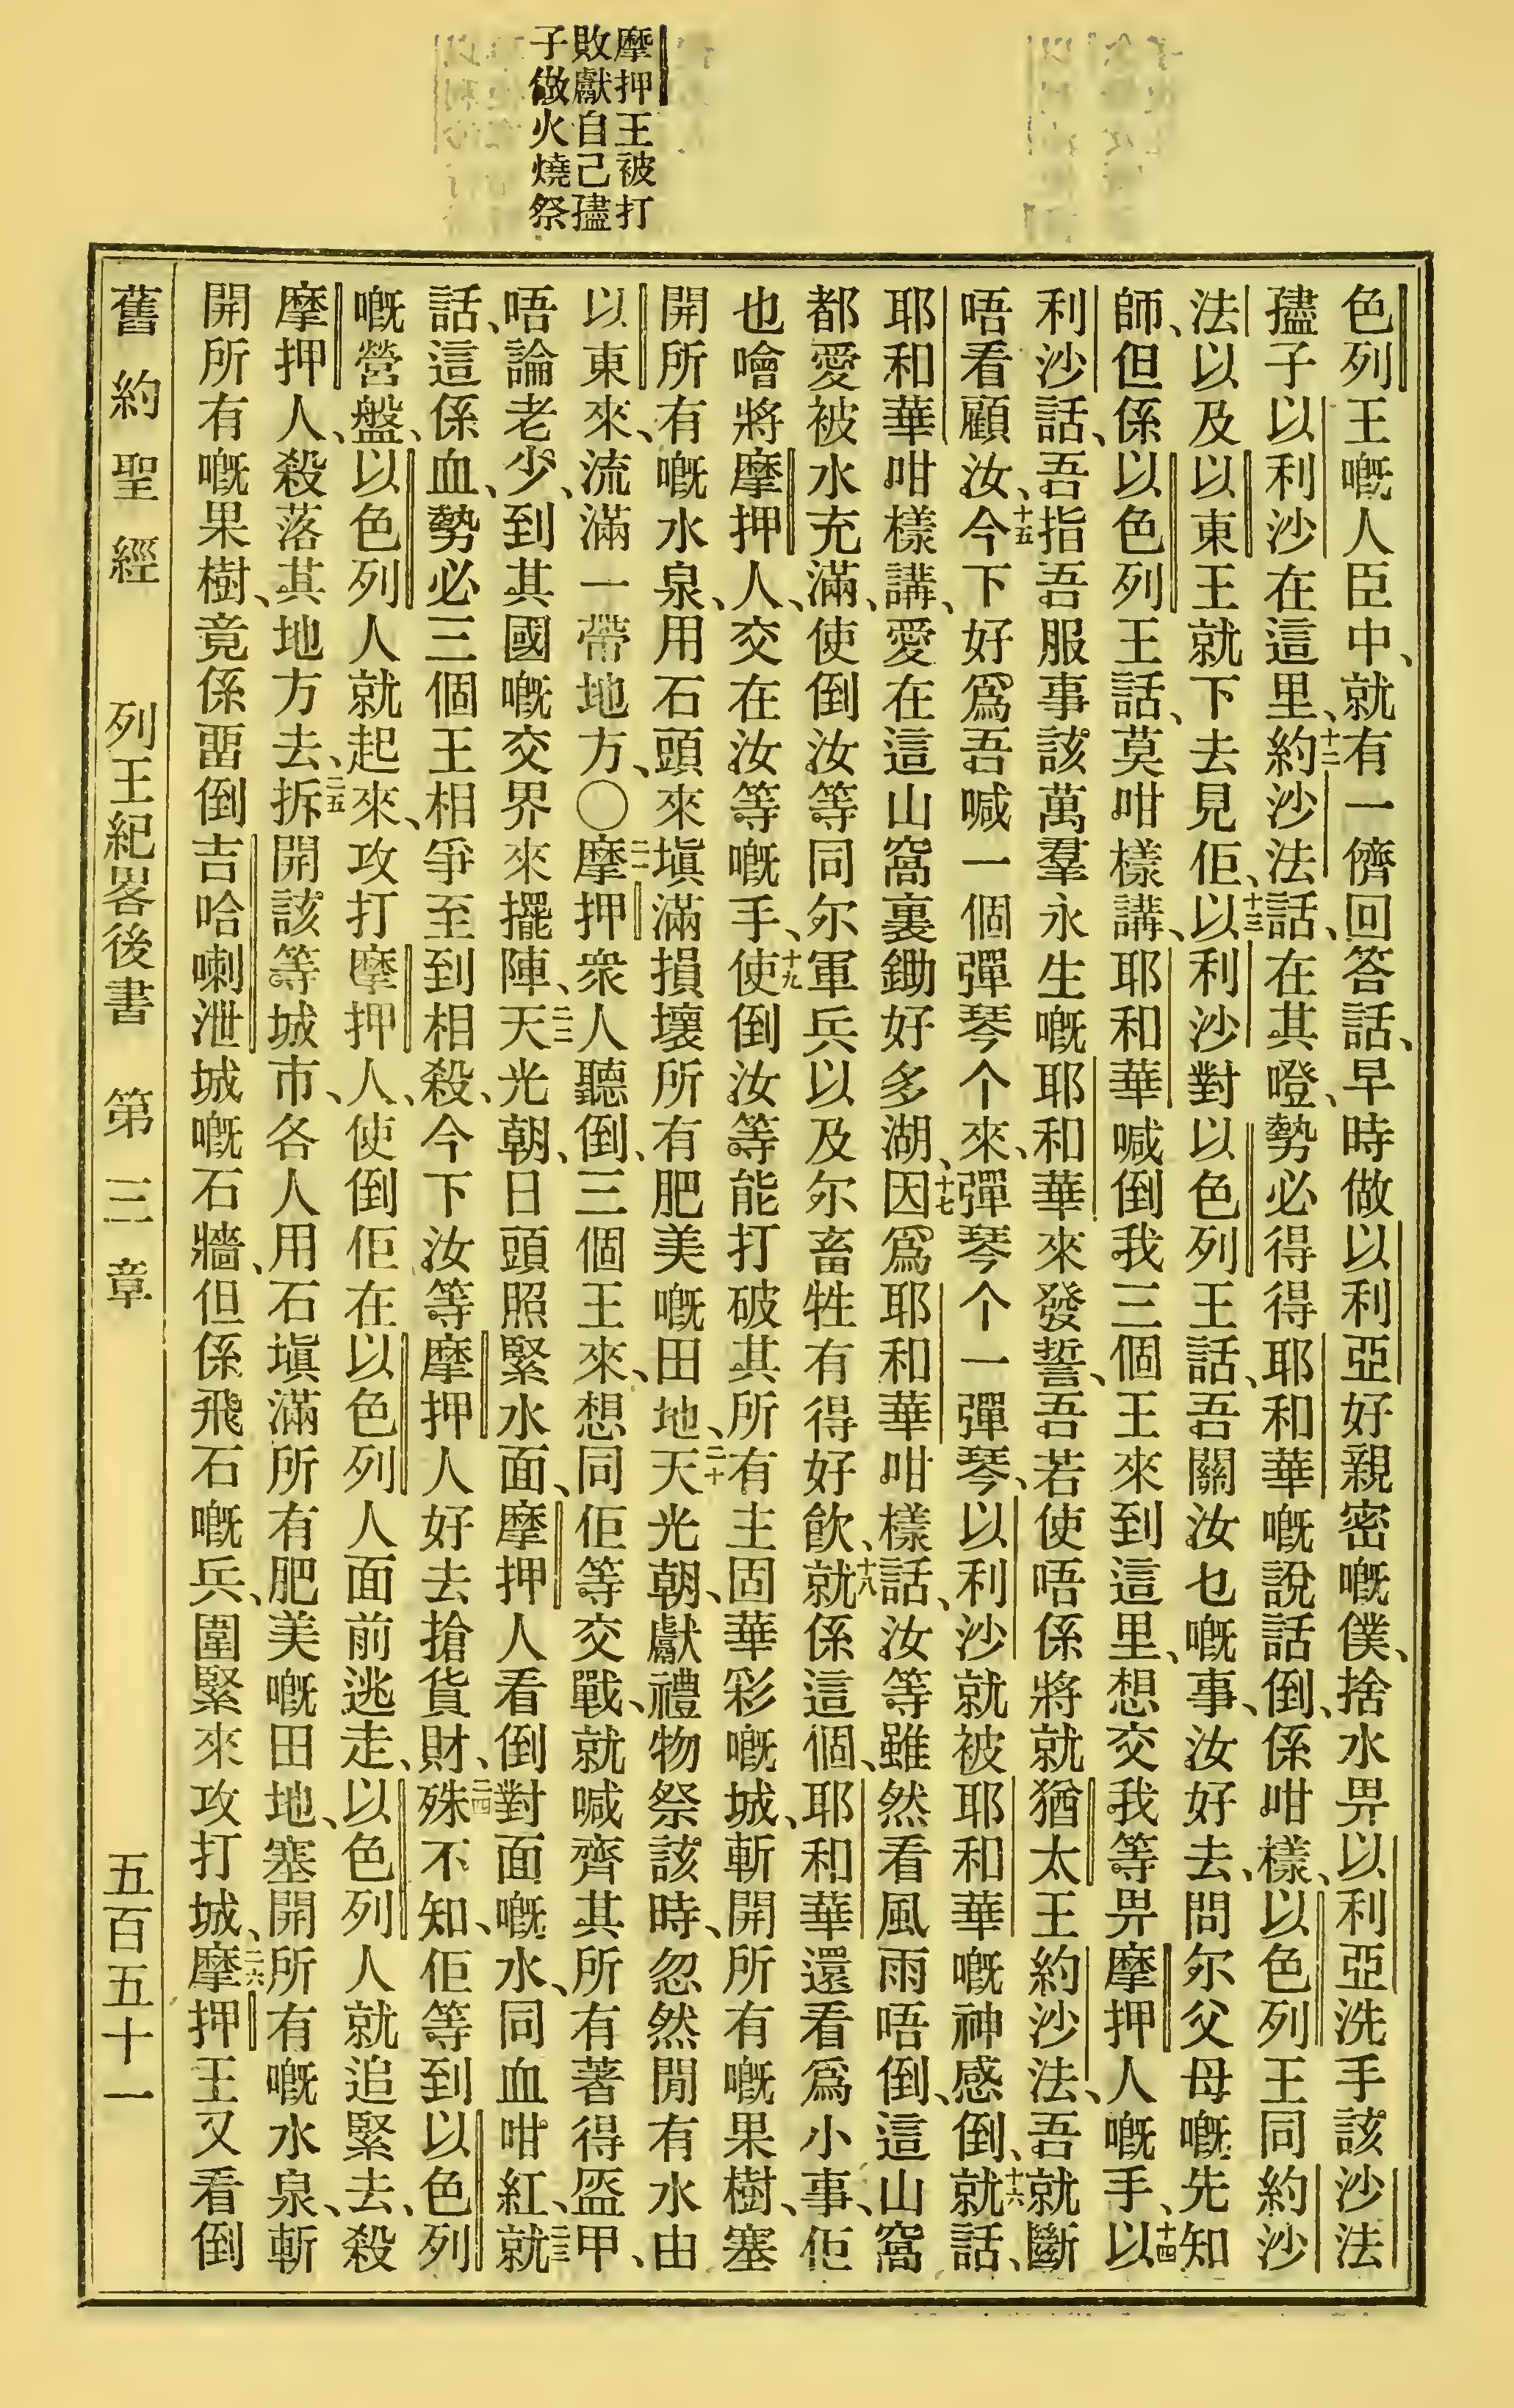 摩押王被打
敗獻自己𧝞
子做火燒祭
色列王嘅人臣中、就有一儕回答話、早時做以利亞好親密嘅僕、捨水畀以利亞洗手該沙法
子以利沙在這里、十二約沙法話、在其噔、勢必得得耶和華嘅說話倒、係咁樣、以色列王同約沙
法以及以東王就下去見佢、十三以利沙對以色列王話、吾關汝乜嘅事、汝好去、問尔父母嘅先知
師、但係以色列王話、莫咁樣講、耶和華喊倒我三個王來到這里、想交我等畀摩押人嘅手、十四以
利沙話、吾指吾服事該萬羣永生嘅耶和華來發誓、吾若使唔係將就猶太王約沙法、吾就斷
唔看顧汝、十五今下好爲吾喊一個彈琴个來、彈琴个一彈琴、以利沙就被耶和華嘅神感倒、十六就話、
耶和華咁樣講、愛在這山窩裏鋤好多湖、十七因爲耶和華咁樣話、汝等雖然看風雨唔倒、這山窩
都愛被水充滿、使倒汝等同尔軍兵以及尔畜牲有得好飲、十八就係這個、耶和華還看爲小事、佢
也噲將摩押人、交在汝等嘅手、十九使倒汝等能打破其所有主固華彩嘅城、斬開所有嘅果樹、塞
開所有嘅水泉、用石頭來塡滿損壞所有肥美嘅田地、二十天光朝、獻禮物祭該時、忽然閒有水由
以東來、流滿一帶地方、〇二一摩押衆人聽倒、三個王來、想同佢等交戰、就喊齊其所有著得盔甲、
唔論老少、到其國嘅交界來擺陣、二二天光朝、日頭照緊水面、摩押人看倒對面嘅水、同血咁紅、二三就
話、這係血、勢必三個王相爭至到相殺、今下汝等摩押人好去搶貨財、二四殊不知、佢等到以色列
嘅營盤、以色列人就起來、攻打摩押人、使倒佢在以色列人面前逃走、以色列人就追緊去、殺
摩押人、殺落其地方去、二五拆開該等城市、各人用石塡滿所有肥美嘅田地、塞開所有嘅水泉、斬
開所有嘅果樹、竟係畱倒吉哈喇泄城嘅石牆、但係飛石嘅兵、圍緊來攻打城、二六摩押王又看倒
舊約聖經　列王紀畧後書　第三章　五百五十一